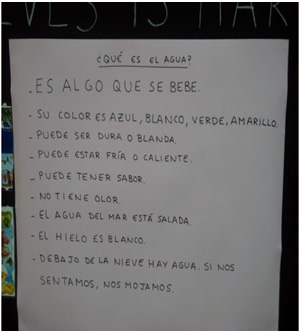 ¿QUÉ ES EL AGUA?
- ES ALGO QUE SE BEBE.
- SU COLOR ES AZUL, BLANCO, VERDE, AMARILLO.
- PUEDE SER DURA O BLANDA.
- PUEDE ESTAR FRÍA O CALIENTE.
- PUEDE TENER SABOR.
- NO TIENE OLOR.
- EL AGUA DEL MAR ESTÁ SALADA.
- EL HIELO ES BLANCO.
- DEBAJO DE LA NIEVE HAY AGUA. SI NOS
SENTAMOS, NOS MOJAMOS.